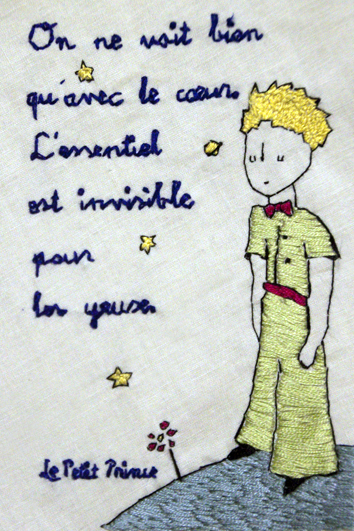 On ne voit bien
qu'avec le cœur.
L'essentiel
est invisible
pour
les yeux.
Le Petit Prince